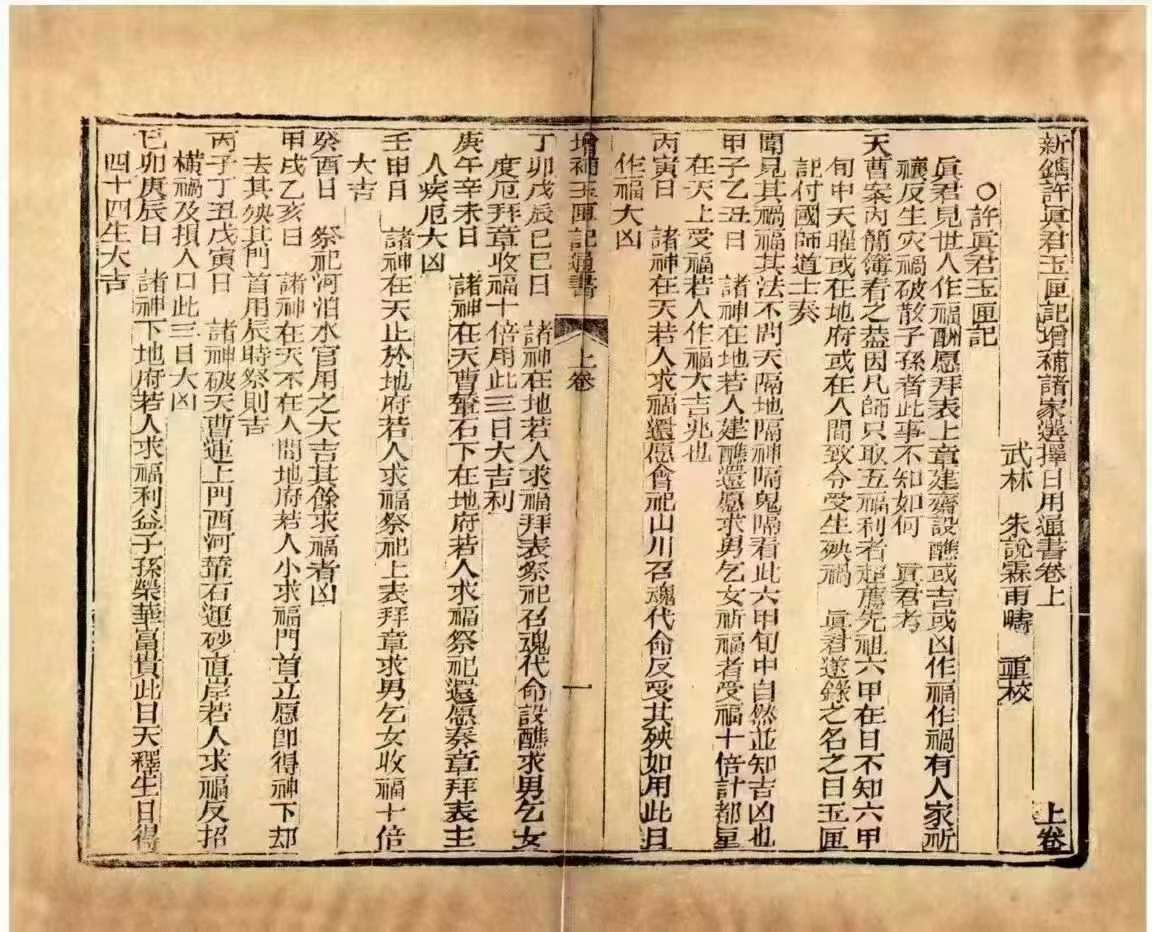 新鐫許眞君玉匣記增補諸家選擇日用通書卷上
武林 朱說霖甫疇 重校 上卷
○許眞君玉匣記
眞君見世人作福酬愿拜表上章建齋設醮或吉或凶作福作禍有人家祈
禳反生灾禍破散子孫者此事不知如何 眞君考
天曹案内簡簿看之葢因凡師只取五福利者超薦先祖六甲在日不知六甲
旬中天曜或在地府或在人間致令受生殃禍 眞君遂錄之名之曰玉匣
記付國師道士奏
聞見其禍福其法不問天隔地隔神隔鬼隔看此六甲旬中自然並知吉凶也
甲子乙丑日 諸神在地若人建醮還愿求男乞女祈福者受福十倍計都星
在天上受福若人作福大吉兆也
丙寅日 諸神在天若人求福還愿會祀山川召魂代命反受其殃如用此日
作福大凶
增補玉匣記通書 上卷 一
丁卯戊辰巳巳日 諸神在地若人求福拜表祭祀召魂代命設醮求男乞女
度厄拜章收福十倍用此三日大吉利
庚午辛未日 諸神在天曹輦石下在地府若人求福祭祀還愿奏章拜表主
人疾厄大凶
壬申日 諸神在天止於地府若人求福祭祀上表拜章求男乞女收福十倍
大吉
癸酉日 祭祀河泊水官用之大吉其餘求福者凶
甲戌乙亥日 諸神在天不在人間地府若人小求福門首立愿卽得神下却
去其殃其門首用辰時祭則吉
丙子丁丑戊寅日 諸神破天曹運上門酉河輦石運砂直岸若人求福反招
橫禍及損人口此三日大凶
巳卯庚辰日 諸神下地府若人求福利益子孫榮華富貴此日天釋生日得
四十四生大吉